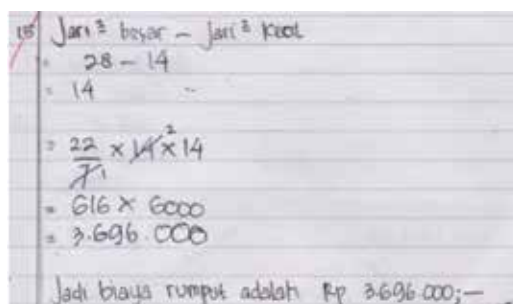 15 Jari² besar - jari² kecil
= 28 - 14
= 14
= 22/7 × 14 × 14
2
1
= 616 × 6000
= 3.696.000
Jadi biaya rumput adalah Rp 3.696.000;-